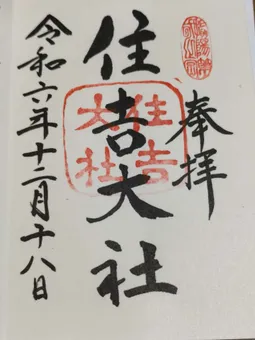 奉拝
住吉大社
住吉
大社
令和六年十二月十八日